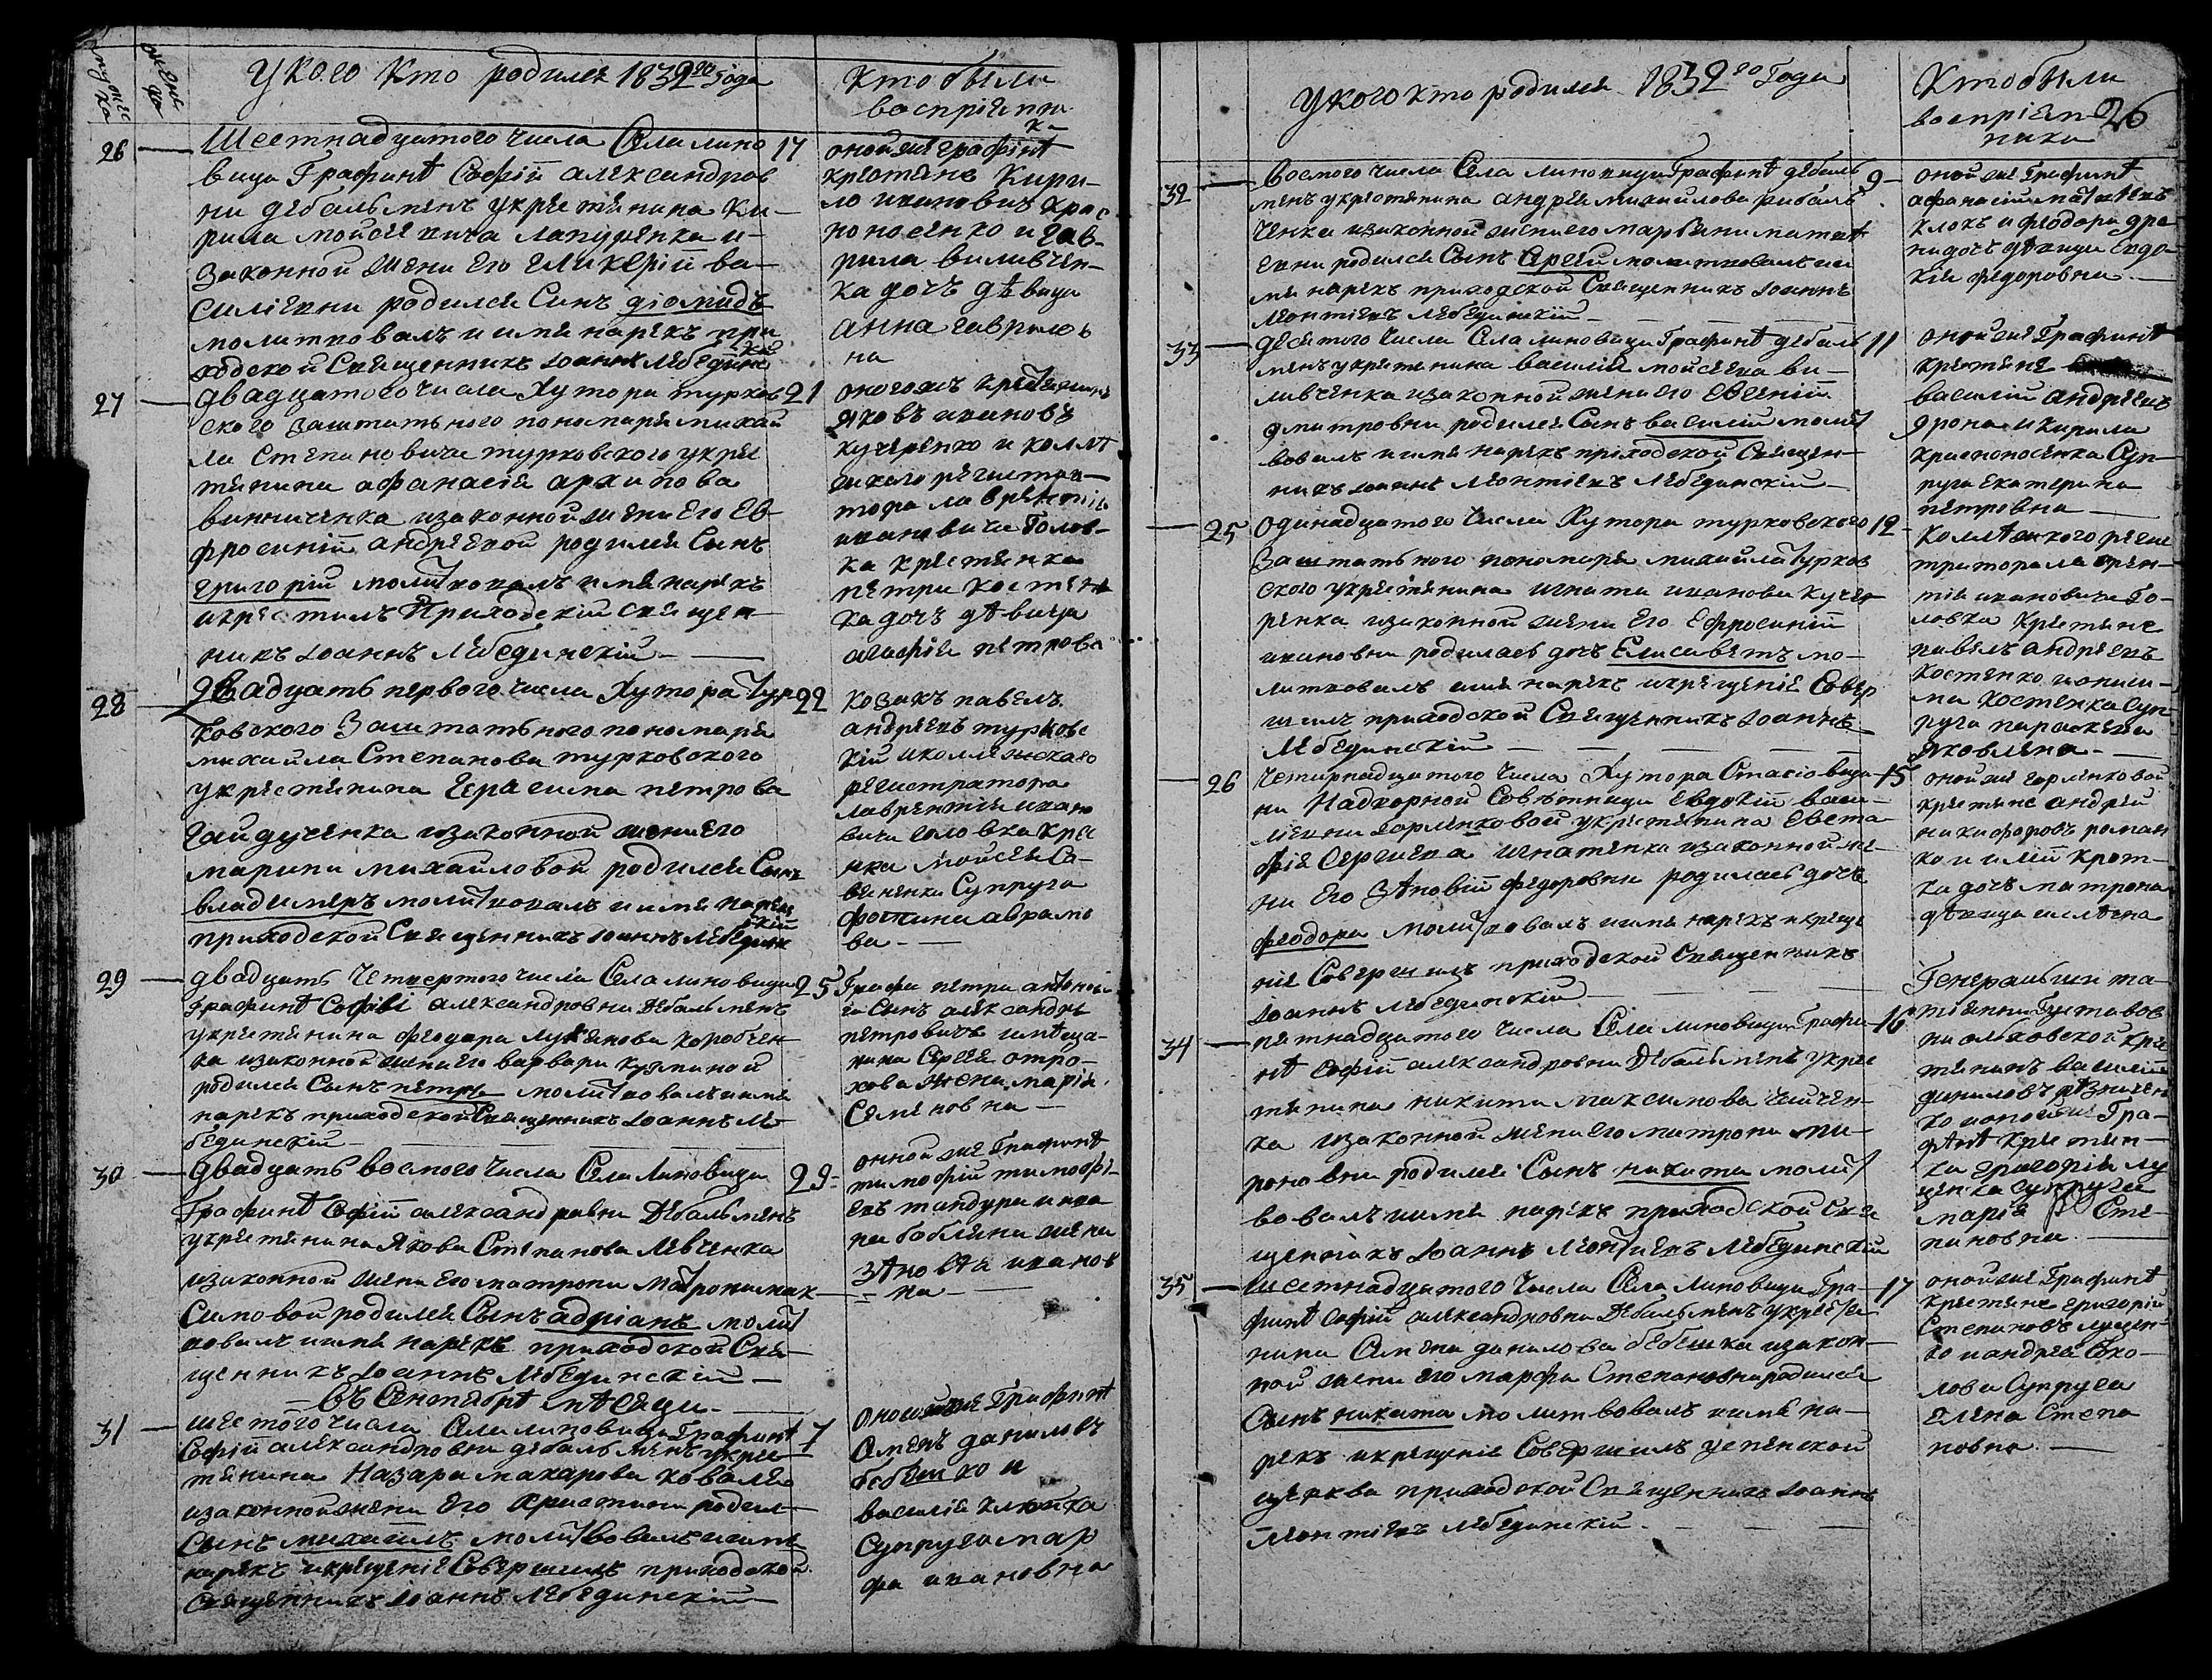 У кого кто родился 1832го года
Кто были
восприемни
ки
26
Шестнадцатого числа Села лино
17
вици Графинѣ Софіи александров
ни дебальменъ укрестянина Ки-
рила мойсеевича лапушенка и-
законной жени Его гликеріи ва-
силіевни родился Синъ діомидъ
молитвовалъ и имя нарекъ при
ходской Священникъ Іоаннъ Лебединскій
оной же графинѣ
крестяне Кири-
ло ивановичъ крас
ноносенко и гав-
рила виливчен-
ка дочъ дѣвица
анна гаврилов
на
27
двадцатого числа Хутора турков
21
ского заштатного пономаря михай
ла Степановича турковского укрес
тянина афанасія архипова
винниченка изаконной жени Его Ев-
фросиніи андреевой родился Сынъ
григорій молитвовалъ имя нарекъ
икрестилъ Приходскій священ-
никъ Іоаннъ Лебединскій
оного жъ крестянинъ
яковъ ивановъ
кучеренко и коллѣ
жского регистра-
тора лаврентія
ивановича Голов-
ка крестянка
петра костен
ка дочъ дѣвица
агафія петрова
28
двадцать первого числа Хутора Тур
22
ковского Заштатного пономаря
михаила Степанова турковского
укрестянина Герасима петрова
гайдученка изаконной жени его
марини михайловой родился Сынъ
владимеръ молитвовалъ и имя нарекъ
приходской Священникъ Іоаннъ Лебединскій
козакъ павелъ
андреевъ турковс
кій иколежского
регистратора
лаврентія ивано
вича головка крес
янка мойсея Са-
вененка Супруга
фотина аврамо
ва
29
двадцать Четвертого числа Села линовици
25
Графинѣ Софіи александровни Дебальменъ
укрестянина феодора Лукянова коробчен-
ка изаконной жени его варвари кузминой
родился Сынъ петръ молитвовалъ иимя
нарекъ приходской Священникъ Іоаннъ Ле-
бединскій
Графа петра антонови
ча Сынъ александръ
петровичъ имѣща-
нина Сергея отро-
хова жена марія
Семеновна
30
двадцать восмого числа Села Линовици
29
Графинѣ Софіи александровни Дебальменъ
укрестянина Якова Степанова Левченка
изаконной жени его матрони Матрони мак-
симовой родился Сынъ адріанъ молит
вовалъ иимя нарекъ приходской Свя-
щенникъ Іоаннъ Лебединскій
онной же Графинѣ
тимофій тимофѣ-
евъ тандура и ива
на бобляна жена
Зѣновѣя иванов
на
въ Сентябрѣ мѣсяци
31
шестого числа Села линовици Графинѣ
7
Софіи александровни дебальменъ укрес
тянина Назара макарова ковалея
изаконной жени Его христини родил-
Сынъ михаилъ молитвовалъ иимя
нарекъ икрещеніе Совершилъ приходской
Священникъ Іоаннъ Лебединскій
оной же Графинѣ
Семенъ даниловъ
бебешко и
василія клюйка
Супруга мар
фа ивановна
У кого кто родился 1832го Года
Кто были
восприем
ники
26
32
восмого числа Села линовици Графинѣ дебаль
9
менъ укрестянина андрея михайлова рибаль
ченка изаконной жени его марфини матвѣ
евни родился Сынъ Сергей молитвовалъ иим
мя нарекъ приходской Священникъ Іоаннъ
Леонтіевъ Лебединскій
оной же Графинѣ
афанасій матвѣевъ
клокъ и феодора дра
ни дочъ дѣвица Евдо
кія федоровна
33
десятого числа Села линовици Графинѣ дебаль
11
менъ укрестянина василія мойсеева ви-
ливченка изаконной жени его Евгеніи
дмитровни родился Сынъ василій молит
вовалъ иимя нарекъ приходской Священ-
никъ Іоаннъ Леонтіевъ Лебединскій
оной же Графинѣ
крестяне
василій андреевъ
дрона и кирила
красноносенка Суп-
руга екатерина
петровна
25
Одинадцатого числа Хутора турковского
12
Заштатного пономаря михайла Турков
ского укрестянина игната иванова куче-
ренка изаконной жени Его Ефросиніи
ивановни родилась дочъ Елисаветъ мо-
литвовалъ имя нарекъ икрещеніе Совер
шилъ приходской Священникъ Іоаннъ
Лебединскій
Коллѣжского регис
тратора лаврен-
тія ивановича Го-
ловка Крестяне
павелъ андреевъ
Костенко ионис-
ма костенка Суп
руга параскева
яковлева
26
Четирнадцатого числа Хутора Стасовщи
15
ни Надворной Совѣтници Евдокіи васи-
левни Горленковой укрестянина Евста-
фія Сергиева игнатенка изаконной же-
ни Его Зѣновіи федоровни родилась дочъ
феодора молитвовалъ иимя нарекъ икреще
ніе Совершилъ приходской Священникъ
Іоаннъ Лебединскій
оной же горленковой
крестяне андрей
никифоровъ роман
ко и илiи крот-
ка дочъ матрона
дѣвица
34
пятнадцатого числа Села линовици Графи
16
нѣ Софіи александровни Дебальменъ укрес
тянина никити максимова чинчен-
ка изаконной жени его матрони ми-
роновни родился Сынъ никита молит
вовалъ иимя нарекъ приходской Свя
щенникъ Іоаннъ Леонтіевъ Лебединскій
Генеральши та-
тіянни Густавов
ни олховской крес
тянинъ василій
даниловъ рѣзничен
ко ионой же Гра-
фѣнѣ крестян-
ка григорія лу
ценка супруга
марія Сте-
пановна
35
шестнадцатого числа Села линовици Гра-
17
финѣ Софіи александровни Дебальменъ укрестя
нина Семена данилова бебешка изакон-
ной жени его марфа Степановна родился
Сынъ никита молитвовалъ иимя на-
рекъ икрещеніе Совершилъ успенской
церкви приходской Священникъ Іоаннъ
Леонтіевъ Лебединскій
оной же Графинѣ
крестяне григорій
Степановъ луцен-
ко иандрея Соко-
лова Супруга
елена Степа
новна